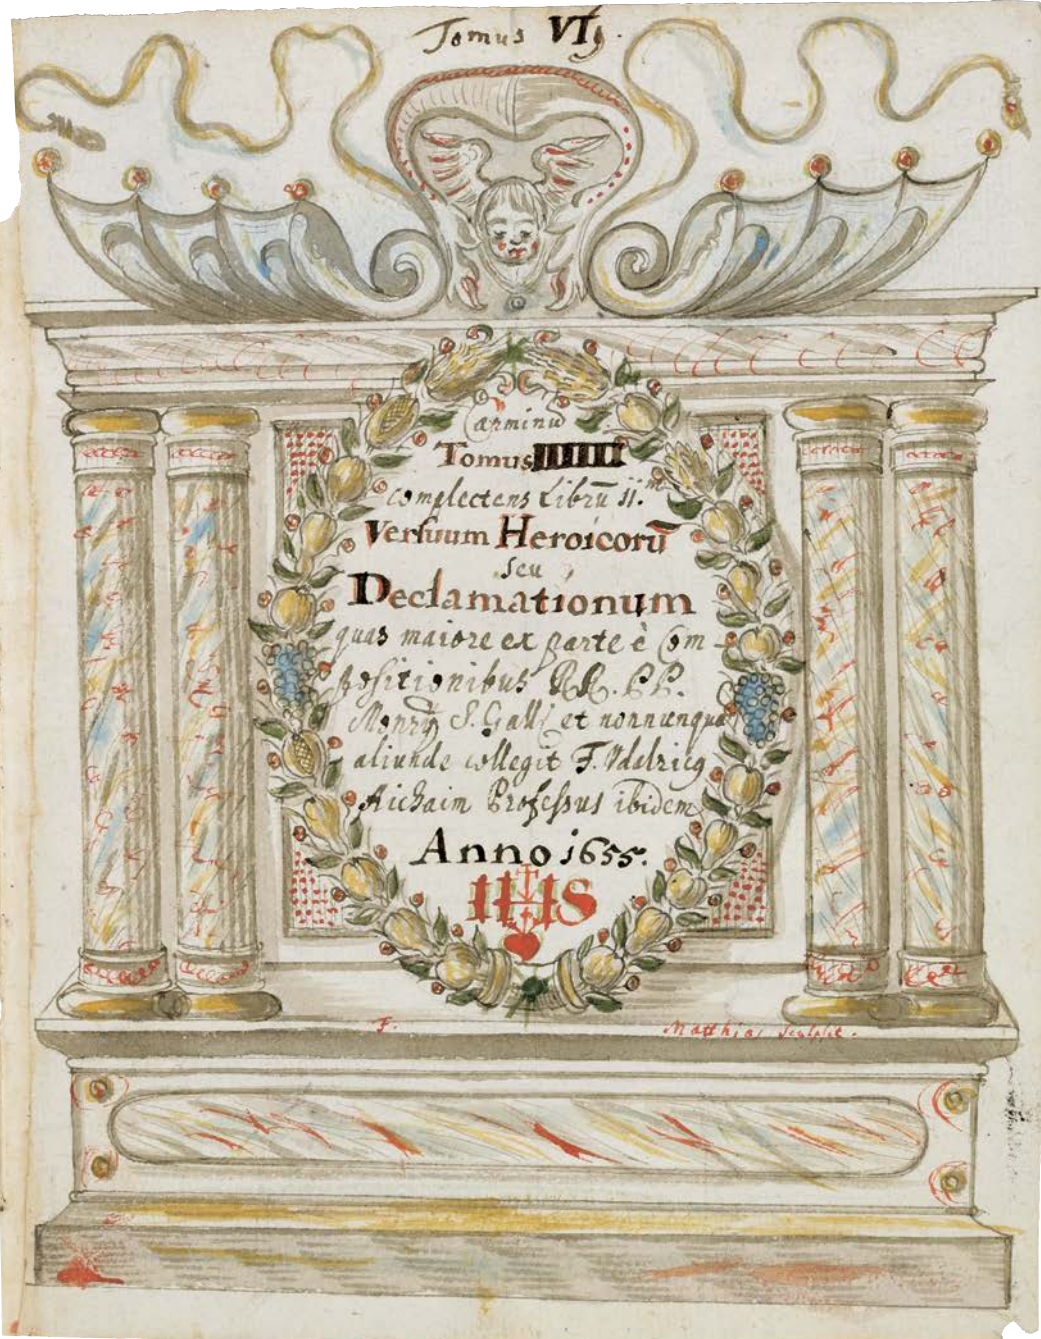 Tomus VIJ.
Carminū
Tomus IIIIII
complectens Librū II.m
Versuum Heroicorū
seu
Declamationum
quas maiore ex parte è Com-
positionibus RR. PP.
Monrÿ S. Galli et nonnunquā
aliunde collegit F. Vdalricq
Aichaim Professus ibidem
Anno 1655.
IHS
F. Matthias sculpsit.